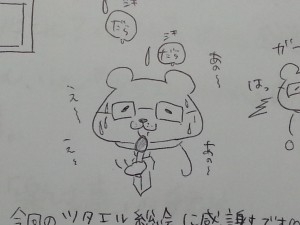 だら
だら
あの〜
え〜
え〜
あの〜
はっ
今回のツタエル総会に感謝